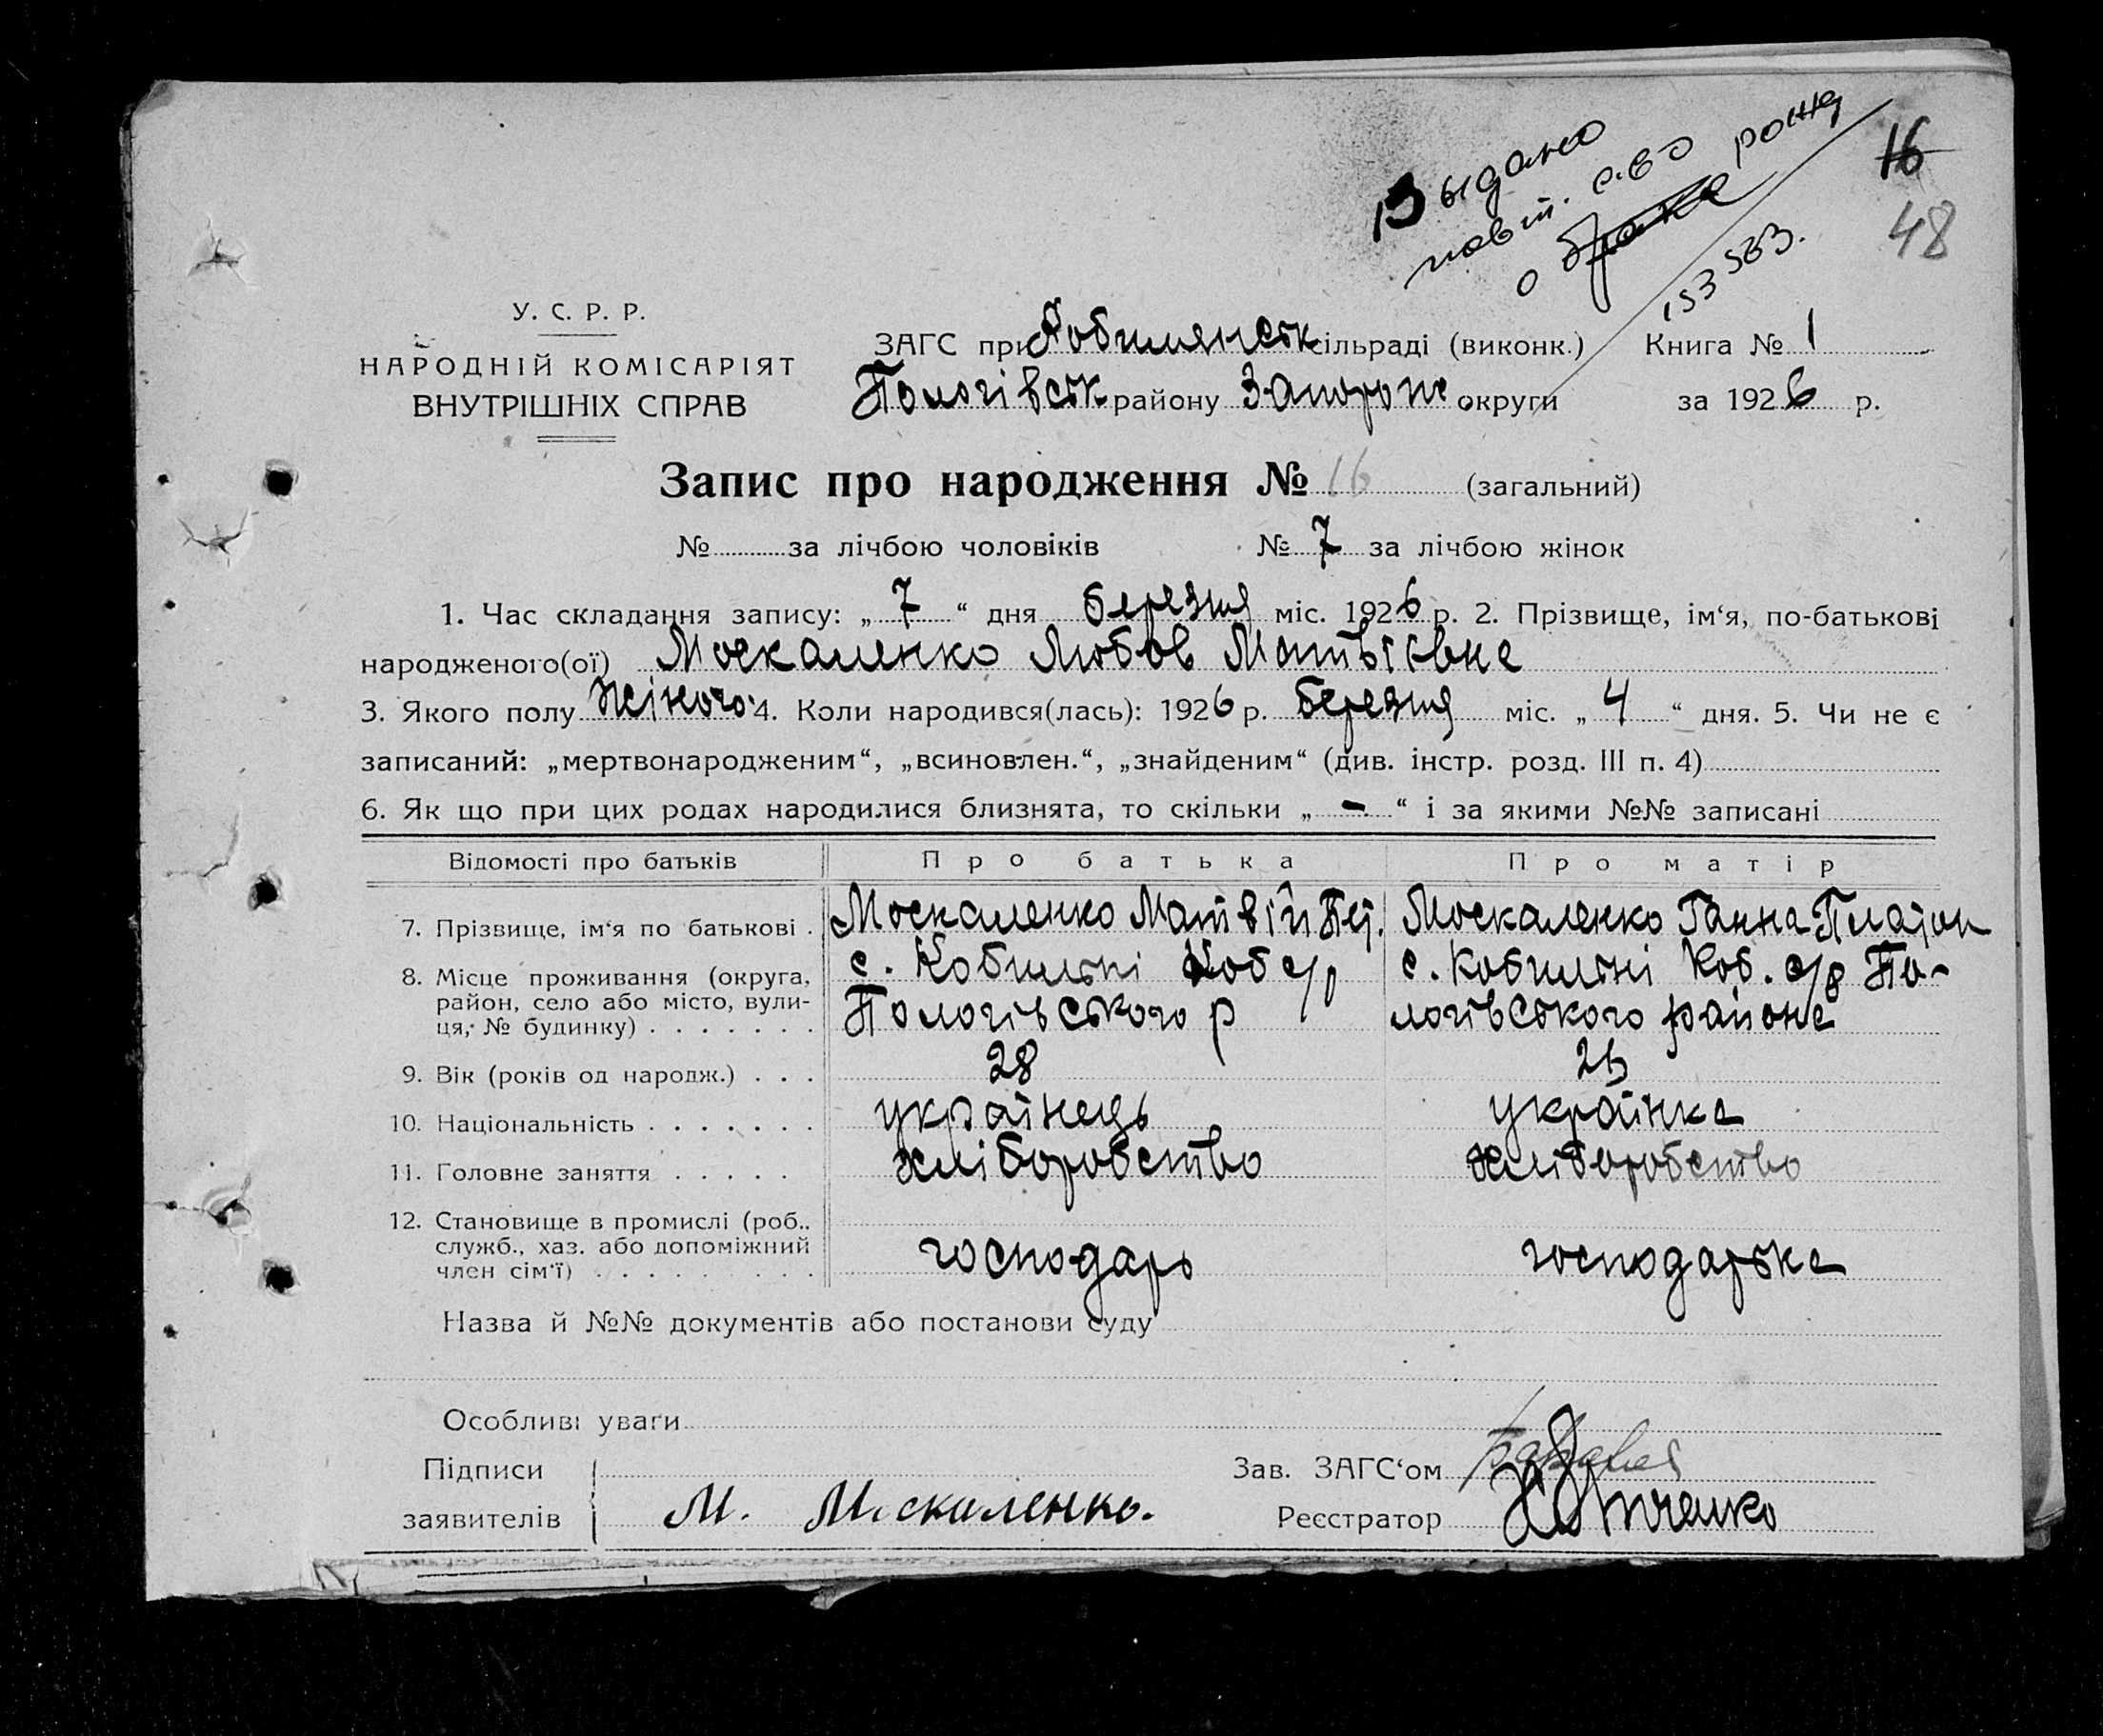 Выдано
повт. св-о рожд
о браке
153583.
16
48
У. С. Р. Р.
НАРОДНІЙ КОМІСАРІЯТ
ВНУТРІШНІХ СПРАВ
ЗАГС при Кобилянськ сільраді (виконк.) Книга № 1
Пологівськ району Запоріж округи за 1926 р.
Запис про народження № 16 (загальний)
№ за лічбою чоловіків № 7 за лічбою жінок
1. Час складання запису: „ 7 “ дня березня міс. 1926 р. 2. Прізвище, ім‘я, по-батькові
народженого(ої) Москаленко Любов Матвіївна
3. Якого полу Жіного. 4. Коли народився(лась): 1926 р. березня міс. „ 4 “ дня. 5. Чи не є
записаний: „мертвонародженим“, „всиновлен.“, „знайденим“ (див. інстр. розд. III п. 4)
6. Як що при цих родах народилися близнята, то скільки „ - “ і за якими №№ записані
Відомості про батьків Про батька Про матір
7. Прізвище, ім‘я по батькові . Москаленко Матвій Пет. Москаленко Ганна Платон
8. Місце проживання (округа, район, село або місто, вули-ця, № будинку) . . . . . . .
с. Кобильні Коб с/р
Пологівського р
с. Кобильні Коб. с/р По-
логівського района
9. Вік (років од народж.) . . . 28
10. Національність . . . . . . . українець українка
11. Головне заняття . . . . . хліборобство хліборобство
12. Становище в промислі (роб., служб., хаз. або допоміжний член сім‘ї) . . . . . . . . . господарь господарька
Назва й №№ документів або постанови суду
Особливі уваги
Підписи
заявителів
М. Москаленко.
Зав. ЗАГС‘ом
Реєстратор